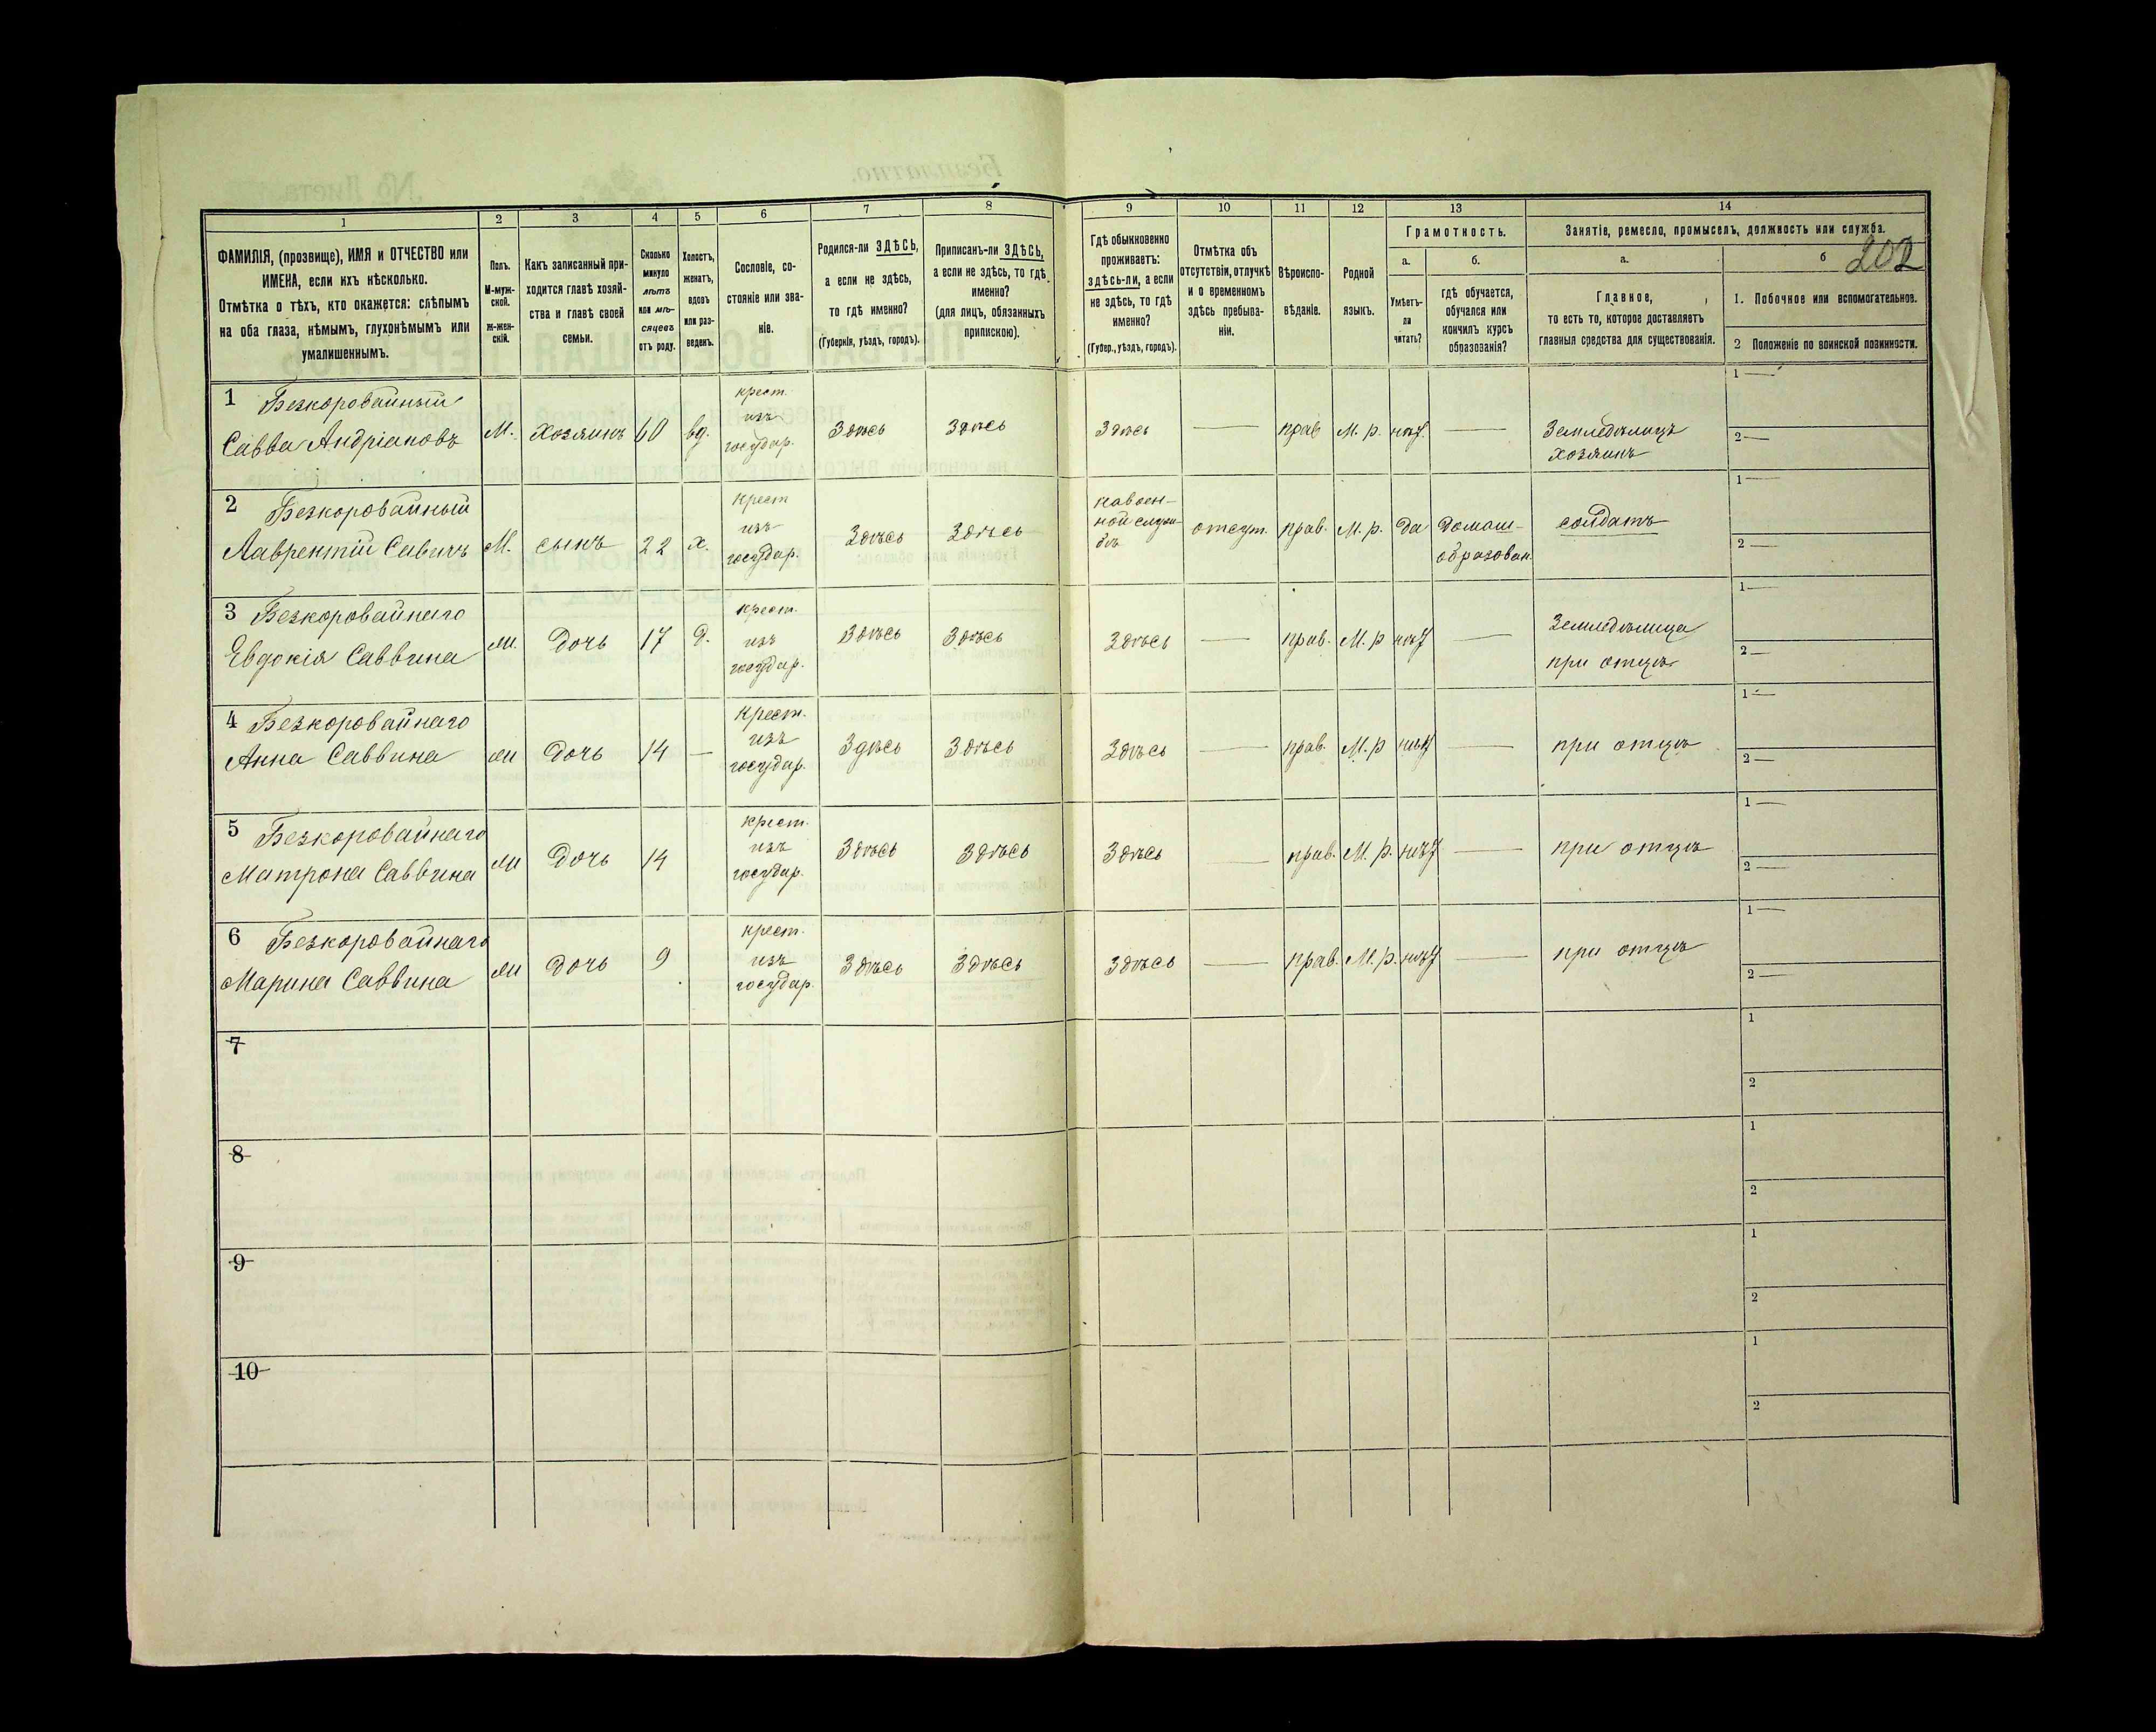 1
2
3
4
5
6
7
8
9
10
11
12
13
14
202
ФАМИЛІЯ, (прозвище), ИМЯ и ОТЧЕСТВО или
ИМЕНА, если ихъ нѣсколько.
Отмѣтка о тѣхъ, кто окажется: слѣпымъ
на оба глаза, нѣмымъ, глухонѣмымъ или
умалишеннымъ.
Полъ.
М-муж-
ской.
ж-жен-
скій.
Какъ записанный при-
ходится главѣ хозяй-
ства и главѣ своей
семьи.
Сколько
минуло
лѣтъ
или мѣ-
сяцевъ
отъ роду.
Холостъ,
женатъ,
вдовъ
или раз-
веденъ.
Сословіе, со-
стояніе или зва-
ніе.
Родился-ли ЗДѢСЬ,
а если не здѣсь,
то гдѣ именно?
(Губернія, уѣздъ, городъ).
Приписанъ-ли ЗДѢСЬ,
а если не здѣсь, то гдѣ
именно?
(для лицъ, обязанныхъ
припискою).
Гдѣ обыкновенно
проживаетъ:
здѣсь-ли, а если
не здѣсь, то гдѣ
именно?
(Губер., уѣздъ, городъ).
Отмѣтка объ
отсутствіи, отлучкѣ
и о временномъ
здѣсь пребыва-
ніи.
Вѣроиспо-
вѣданіе.
Родной
языкъ.
Грамотность.
а.
Умѣетъ-
ли
читать?
б.
гдѣ обучается,
обучался или
кончилъ курсъ
образованія?
Занятіе, ремесло, промыселъ, должность или служба.
а.
Главное,
то есть то, которое доставляетъ
главныя средства для существованія.
б
1. Побочное или вспомогательное.
2 Положеніе по воинской повинности.
1 Безкоровайный
Савва Андріановъ
М.
хозяинъ
60
вд.
крест.
изъ
государ.
Здѣсь
Здѣсь
Здѣсь
—
прав
М. р.
нѣт.
—
Земледѣлецъ
хозяинъ
1 —
2 —
2 Безкоровайный
Лаврентій Савичъ
М.
сынъ
22
х.
крест
изъ
государ.
Здѣсь
Здѣсь
на воен-
ной служ-
бѣ
отсут.
прав.
М. р.
да
домаш-
образован.
солдатъ
1 —
2 —
3 Безкоровайнаго
Евдокія Саввина
ж.
дочь
17
д.
крест.
изъ
государ.
Здѣсь
Здѣсь
Здѣсь
—
прав.
М. р
нѣт
—
Земледѣлица
при отцѣ
1 —
2 —
4 Безкоровайнаго
Анна Саввина
ж
дочь
14
—
Крест.
изъ
государ.
Здѣсь
Здѣсь
Здѣсь
—
прав.
М. р
нѣт
—
при отцѣ
1 —
2 —
5 Безкоровайнаго
Матрона Саввина
ж
дочь
14
крест.
изъ
государ.
Здѣсь
Здѣсь
Здѣсь
—
прав.
М. р.
нѣт
—
при отцѣ
1 —
2 —
6 Безкоровайнаго
Марина Саввина
ж
дочь
9
крест.
изъ
государ.
Здѣсь
Здѣсь
Здѣсь
—
прав.
М. р.
нѣт
—
при отцѣ
1 —
2 —
7
1
2
8
1
2
9
1
2
10
1
2